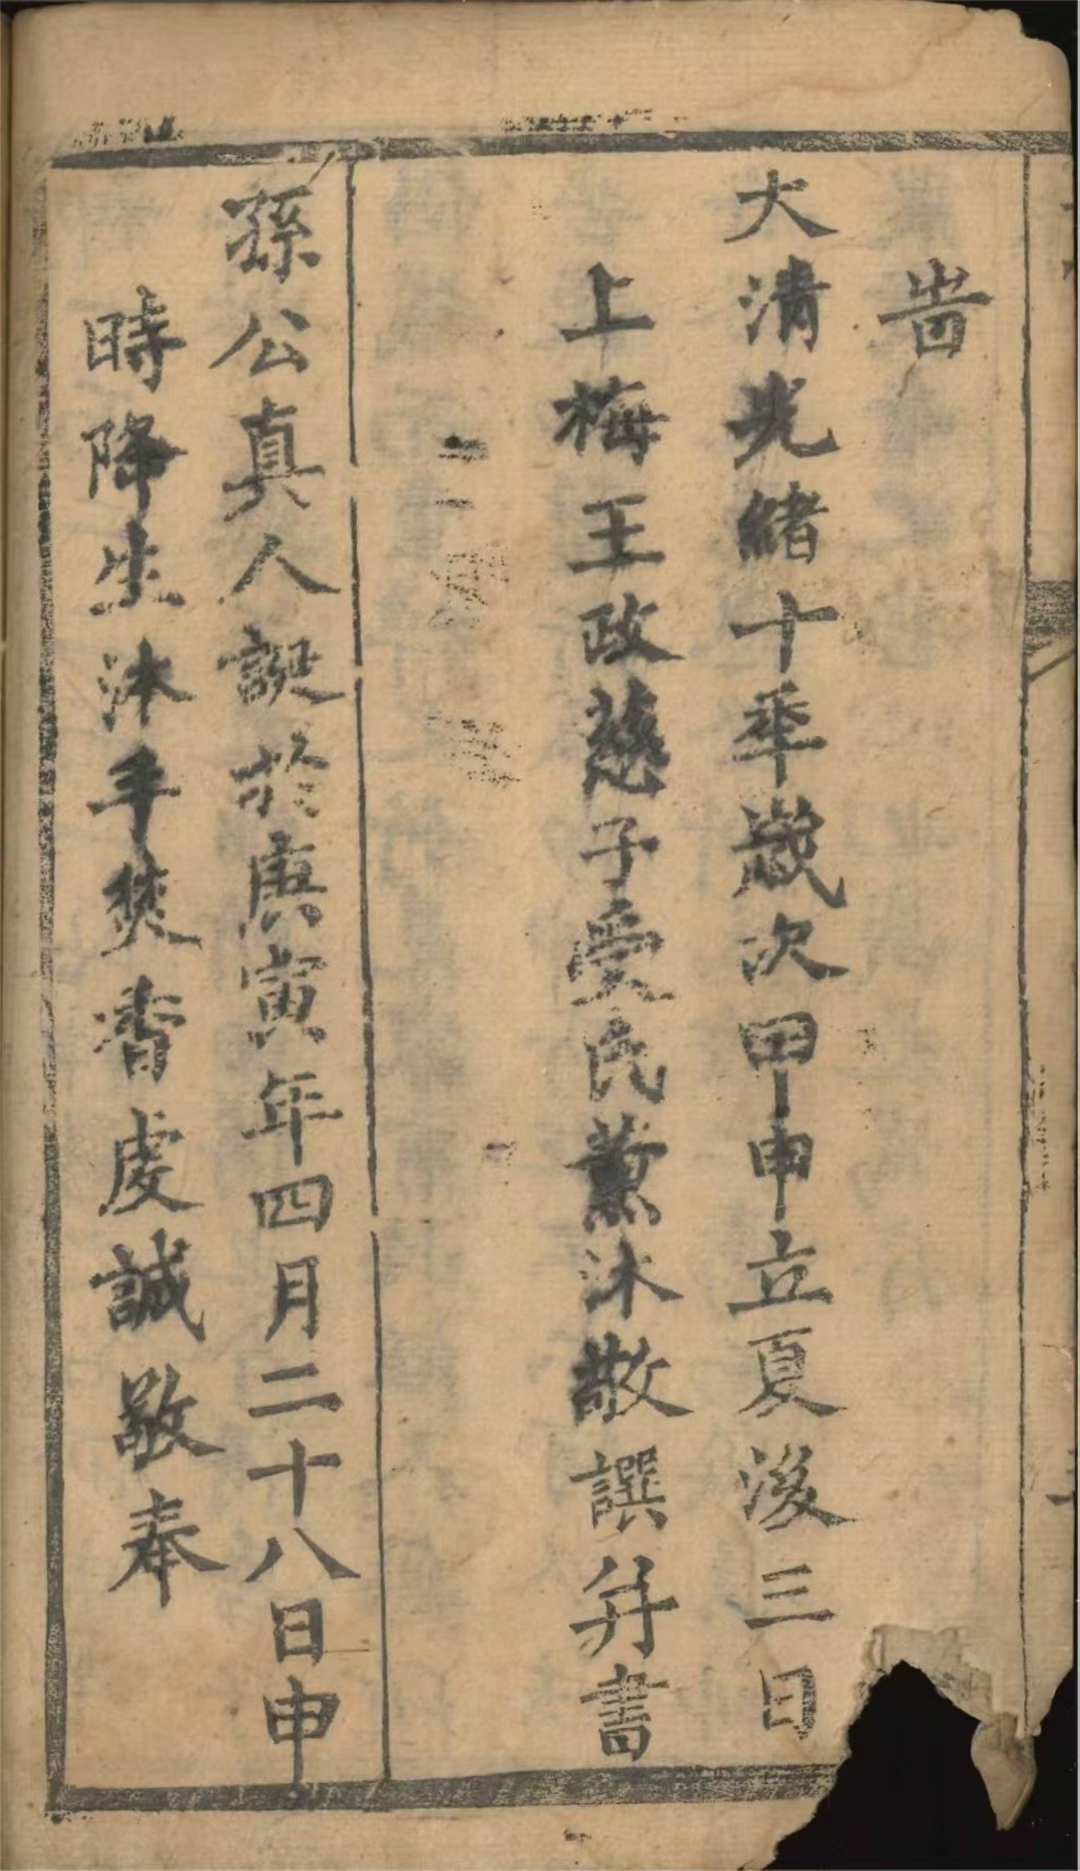 旹
大清光緒十年歲次甲申立夏後三日
上梅王政慈子受民薰沐敬譔并書
孫公真人誕於庚寅年四月二十八日申
時降生沐手焚香虔誠敬奉